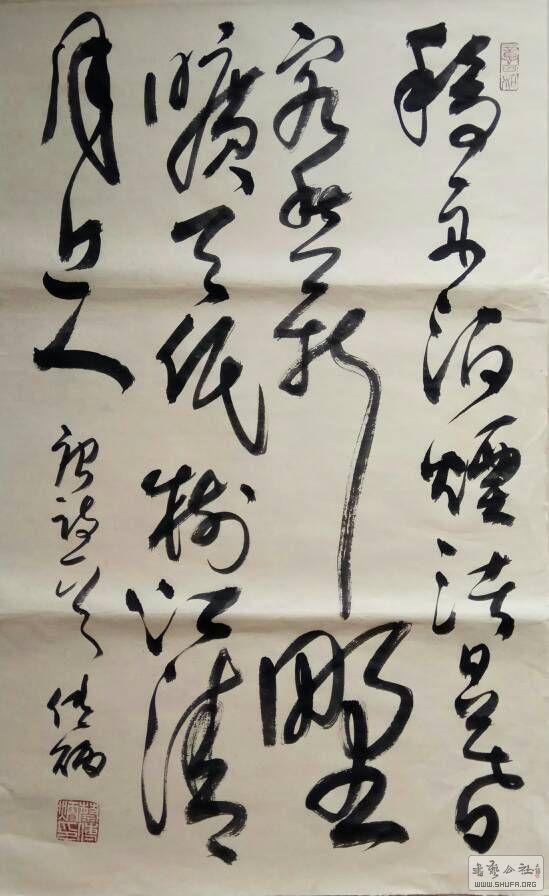 移舟泊煙渚日暮
客愁新野
曠天低樹江清
月近人
唐詩一首
書藝公社
WWW.SHUFA.ORG